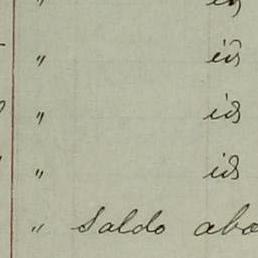 " id
" id
" id
" id
" Saldo abo